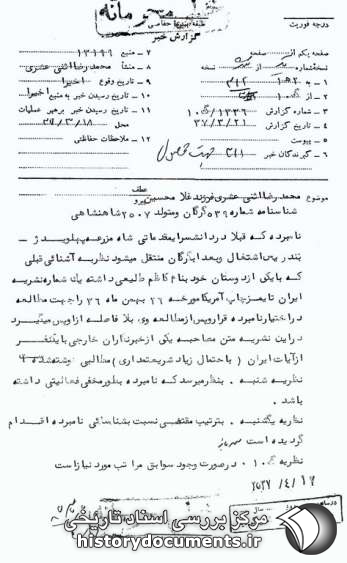 محرمانه
درجه فوریت
طبقه بندی حفاظتی
گزارش خبر
صفحه یکم از صفحه
نسخه شماره از نسخه
۱ ـ به ۳۱۲
۲ ـ از
۳ ـ شماره گزارش ۱۰/۱۳۳۶
۴ ـ تاریخ گزارش ۳۷/۳/۲۱
۵ ـ پیوست
۶ ـ گیرندگان خبر ۳۱۱
۷ ـ منبع ۱۳۱۹۹
۸ ـ منشاء محمد رضا اثنی عشری
۹ ـ تاریخ وقوع اخیرا
۱۰ ـ تاریخ رسیدن خبر به منبع اخیرا
۱۱ ـ تاریخ رسیدن خبر به رهبر عملیات
محل ۳۷/۳/۱۸
۱۲ ـ ملاحظات حفاظتی
عطف
پیرو
موضوع محمد رضا اثنی عشری فرزند غلامحسین
شناسنامه شماره ۵۳۹ گرگان و متولد ۲۵۰۷ شاهنشاهی
نامبرده که قبلا در دانشسرای مقدماتی شاه مزرعه پهلویدژ ـ
بندر بس اشتغال و بعدا بگرگان منتقل میشود نظر به آشنائی قبلی
که با یکی از دوستان خود بنام کاظم طلیعی داشته یک شماره نشریه
ایران تایمز چاپ آمریکا مورخه ۲۶ بهمن ماه ۳۶ را جهت مطالعه
در اختیار نامبرده قرار و پس از مطالعه وی بلا فاصله از او پس میگیرد
در این نشریه متن مصاحبه یکی از خبرنگاران خارجی با یکنفر
از آیات ایران ( باحتمال زیاد شریعتمداری ) مطالبی نوشته شده
نظریه شنبه . بنظر میرسد که نامبرده بطور مخفی فعالیتی داشته
باشد .
نظریه یکشنبه . بترتیب مقتضی نسبت بشناسائی نامبرده اقدام
گردیده است
نظریه ۱۰ . در صورت وجود سوابق مراتب مورد نیاز است
۲۵۳۷/۴/۱۲
مرکز بررسی اسناد تاریخی
historydocuments.ir